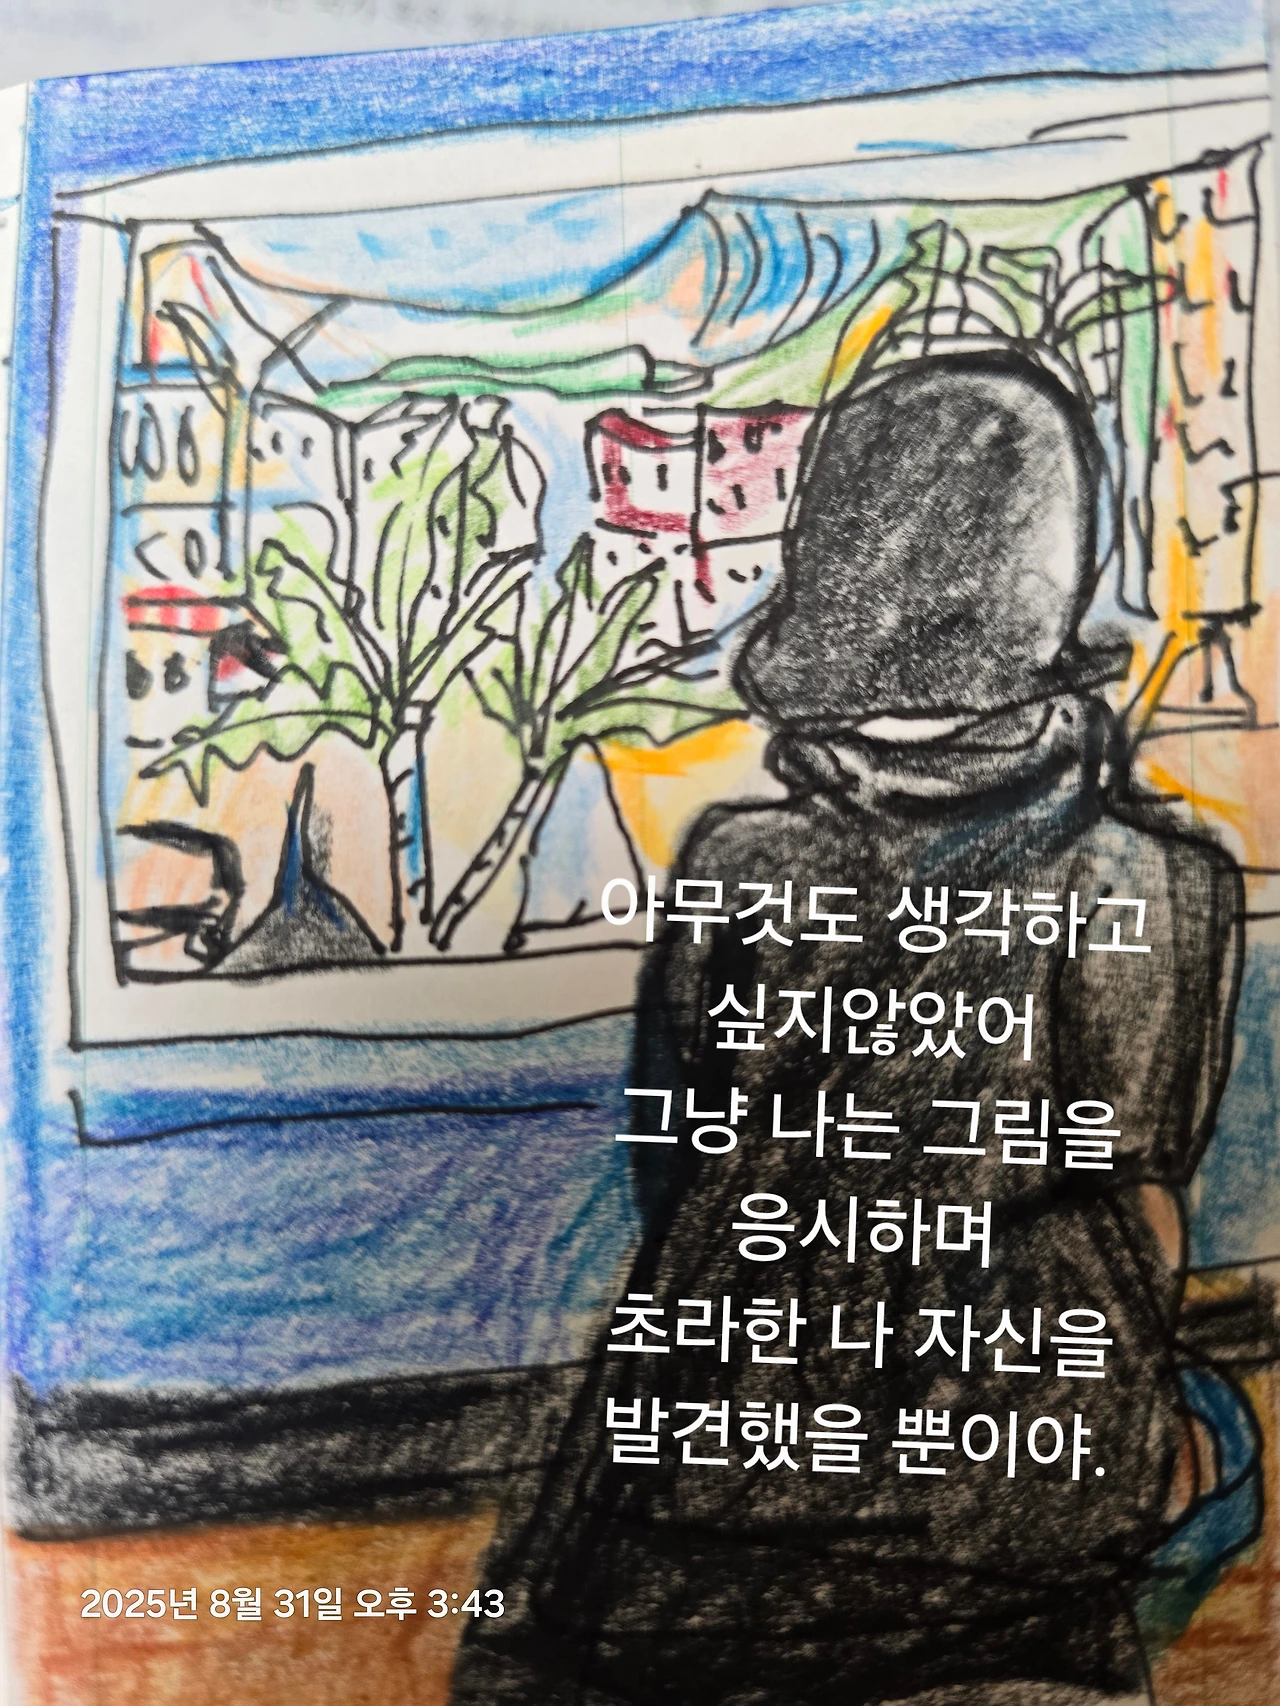 아무것도 생각하고
싶지않았어
그냥 나는 그림을
응시하며
초라한 나 자신을
발견했을 뿐이야.
2025년 8월 31일 오후 3:43